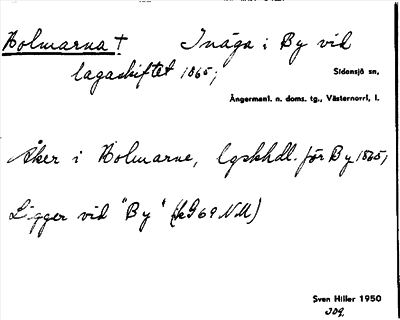 Holmarna † Inäga i By vid
lagaskiftet 1865;
Sidensjö sn,
Ångermanl. n. doms. tg., Västernorrl. l.
Åker i Holmarne, lgskhdl. för By 1865;
Ligger vid "By" (kG 69 NM)
Sven Hiller 1950
309.